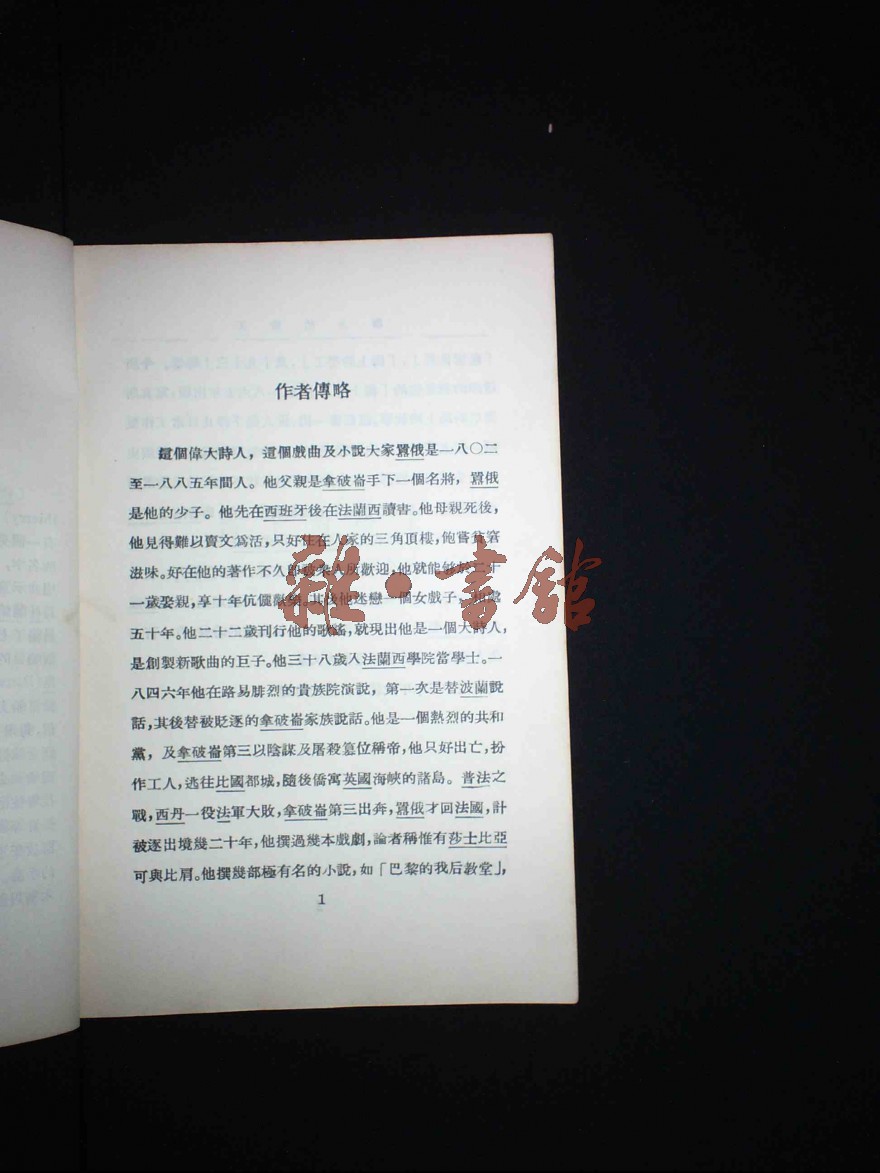 作者傳略
這個偉大詩人，這個戲曲及小說大家囂俄是一八〇二
至一八八五年間人。他父親是拿破崙手下一個名將，囂俄
是他的少子。他先在西班牙後在法蘭西讀書。他母親死後，
他見得難以賣文爲活，只好住在人家的三角頂樓，飽嘗貧窘
滋味。好在他的著作不久卽被衆人所歡迎，他就能够於二十
一歲娶親，享十年伉儷歡樂。其後他迷戀一個女戲子，相處
五十年。他二十二歲刊行他的歌謠，就現出他是一個大詩人，
是創製新歌曲的巨子。他三十八歲入法蘭西學院當學士。一
八四六年他在路易腓烈的貴族院演說，第一次是替波蘭說
話，其後替被貶逐的拿破崙家族說話。他是一個熱烈的共和
黨，及拿破崙第三以陰謀及屠殺篡位稱帝，他只好出亡，扮
作工人，逃往比國都城，隨後僑寓英國海峽的諸島。普法之
戰，西丹一役法軍大敗，拿破崙第三出奔，囂俄才回法國，計
被逐出境幾二十年，他撰過幾本戲劇，論者稱惟有莎士比亞
可與比肩。他撰幾部極有名的小說，如「巴黎的我后教堂」，
1
雜·書館